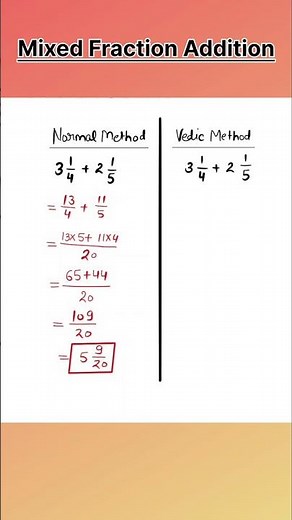 Mixed Fraction Addition
Normal Method
3 1/4 + 2 1/5
= 13/4 + 11/5
= 13×5 + 11×4 / 20
= 65+44 / 20
= 109/20
= 5 9/20
Vedic Method
3 1/4 + 2 1/5